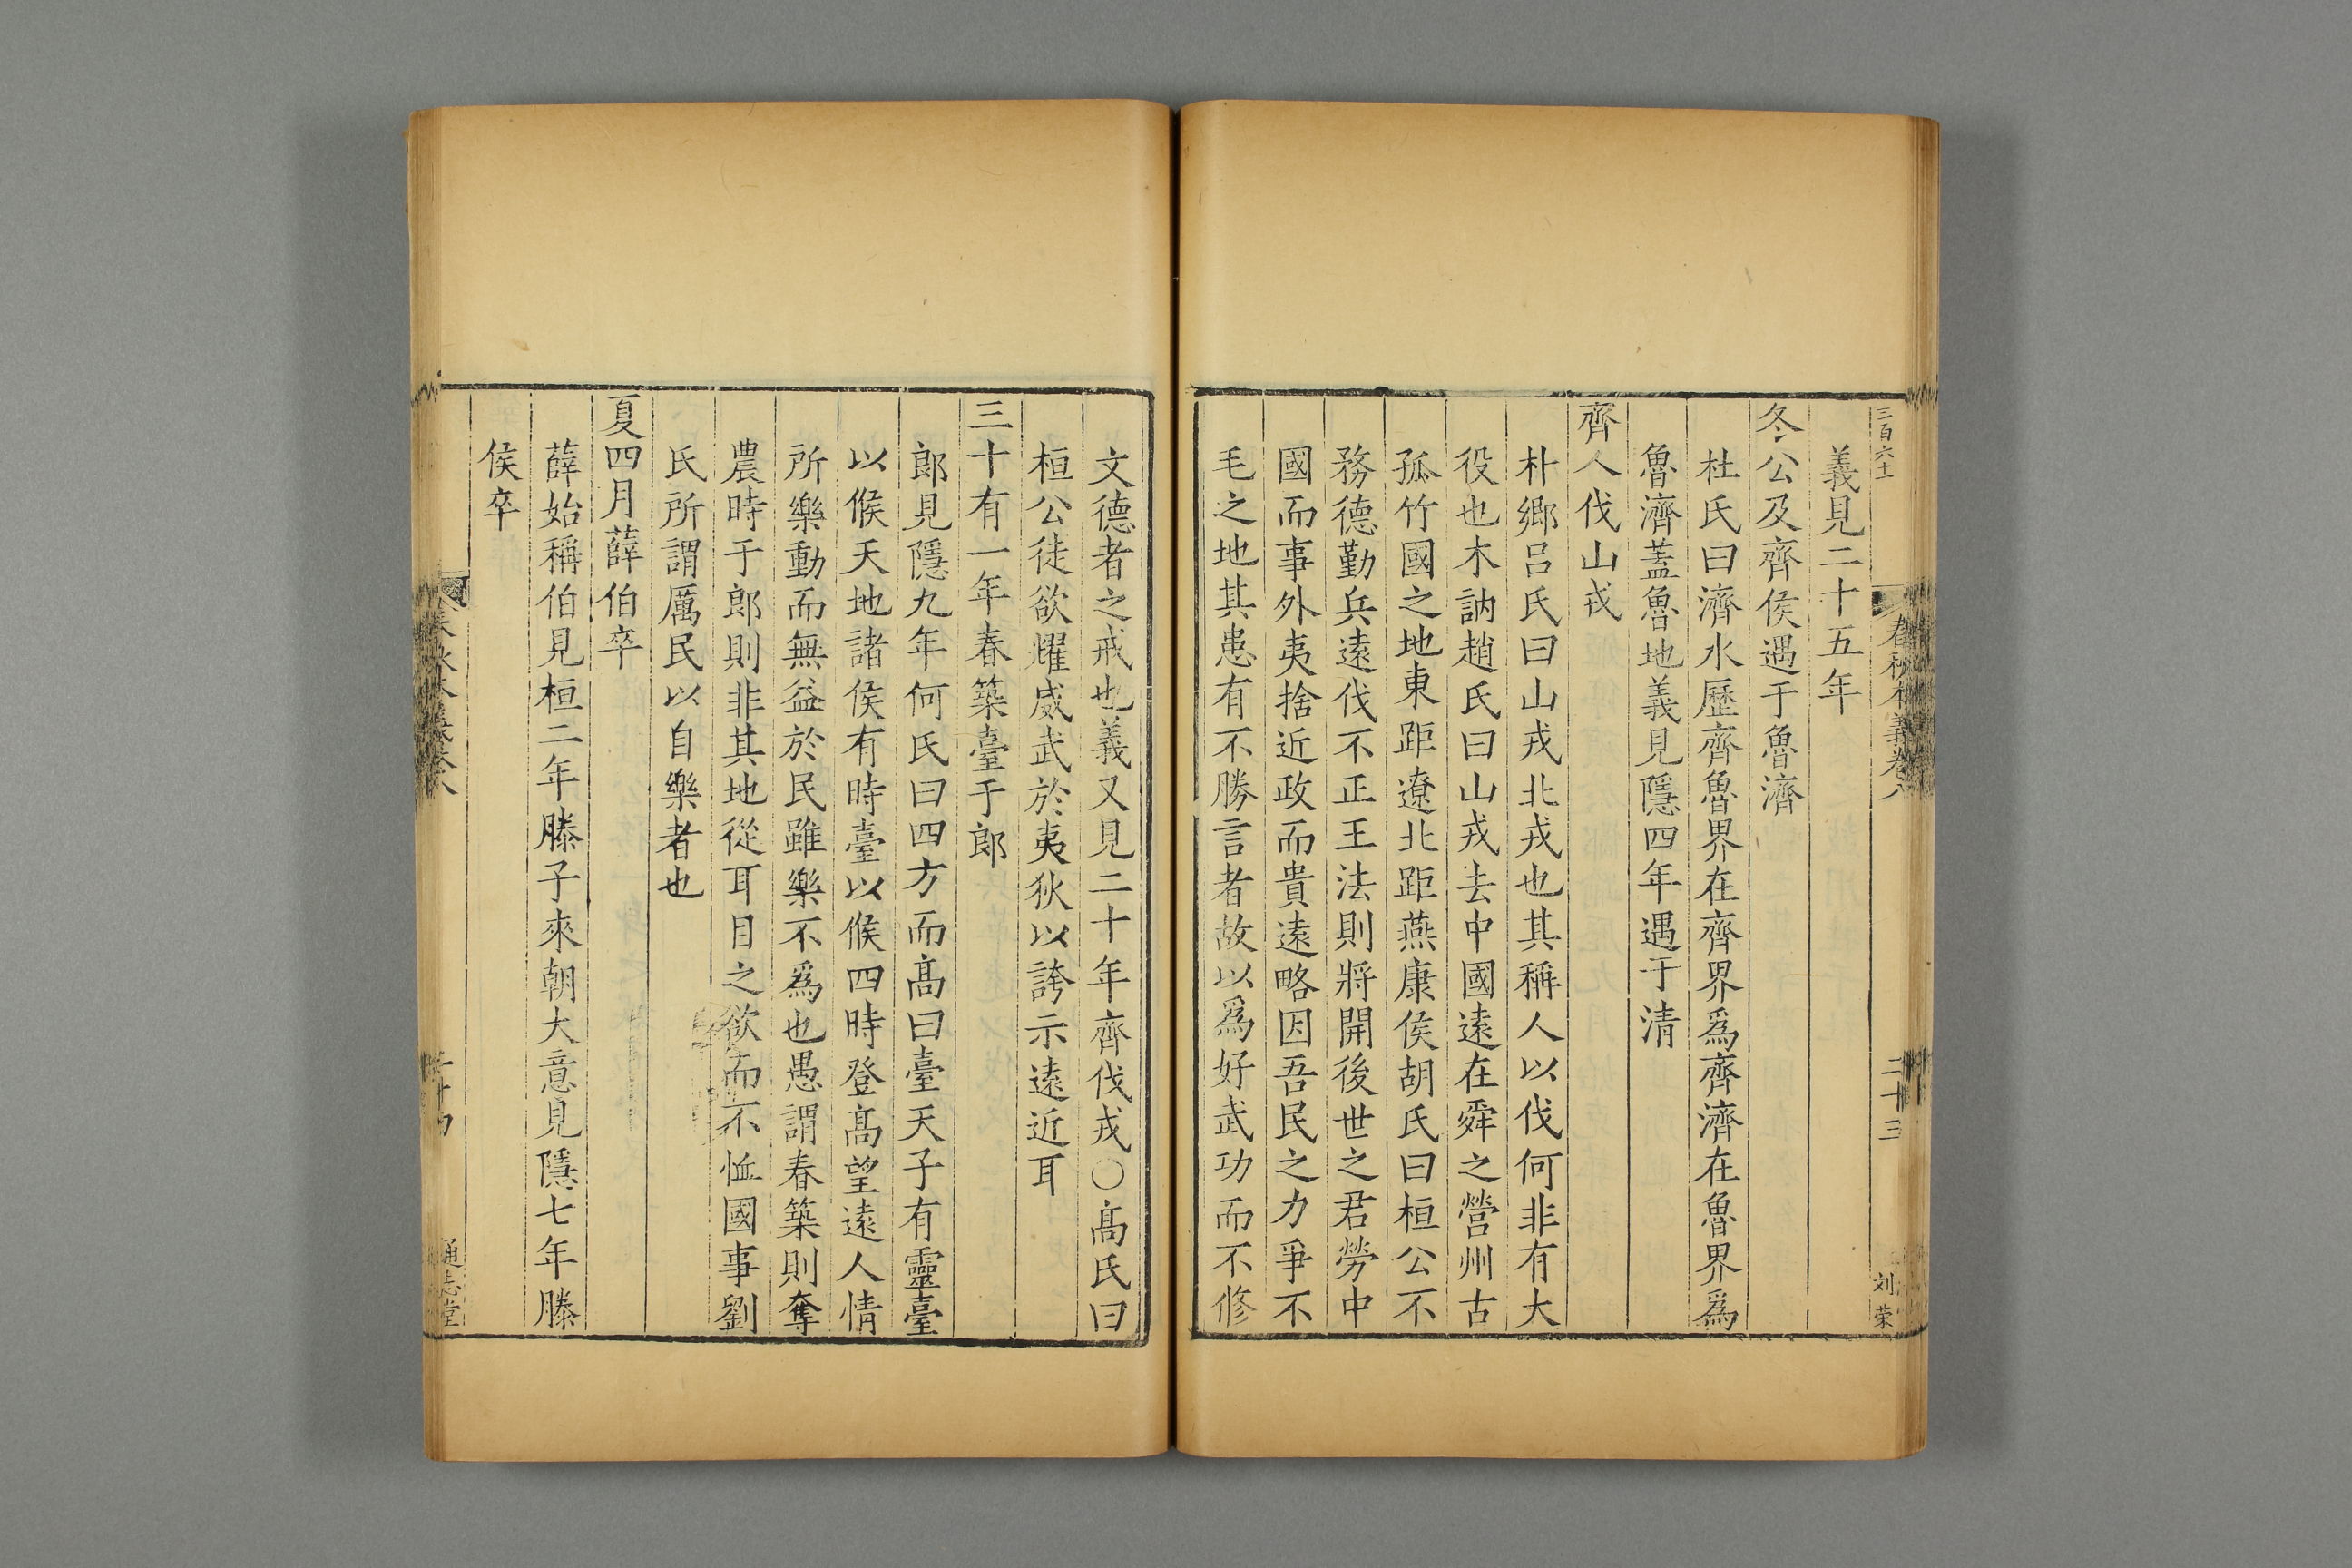 三百六十
春秋本義卷八
二十三
刘荣
義見二十五年
冬公及齊侯遇于魯濟
杜氏曰濟水歷齊魯界在齊界爲齊濟在魯界爲
魯濟蓋魯地義見隱四年遇于清
齊人伐山戎
朴鄉吕氏曰山戎北戎也其稱人以伐何非有大
役也木訥趙氏曰山戎去中國遠在舜之營州古
孤竹國之地東距遼北距燕康侯胡氏曰桓公不
務德勤兵遠伐不正王法則將開後世之君勞中
國而事外夷捨近政而貴遠略困吾民之力爭不
毛之地其患有不勝言者故以爲好武功而不修
文德者之戒也義又見二十年齊伐戎○高氏曰
桓公徒欲耀威武於夷狄以誇示遠近耳
三十有一年春築臺于郎
郎見隱九年何氏曰四方而高曰臺天子有靈臺
以候天地諸侯有時臺以候四時登高望遠人情
所樂動而無益於民雖樂不爲也愚謂春築則奪
農時于郎則非其地從耳目之欲而不恤國事劉
氏所謂厲民以自樂者也
夏四月薛伯卒
薛始稱伯見桓二年滕子來朝大意見隱七年滕
侯卒
通志堂